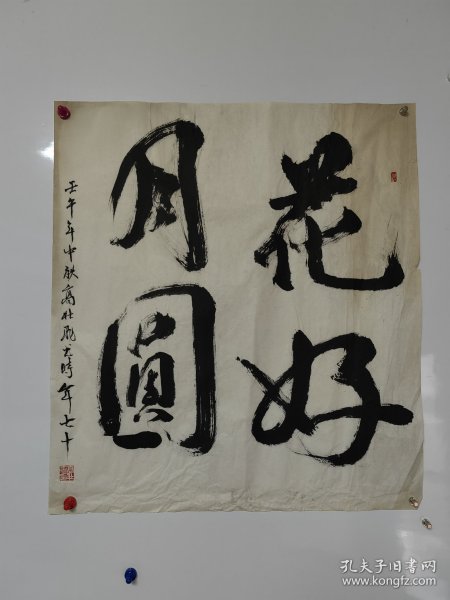 花好
月圓
壬午年中秋高壮飛大時年七十
孔夫子旧书网
www.kongfz.com